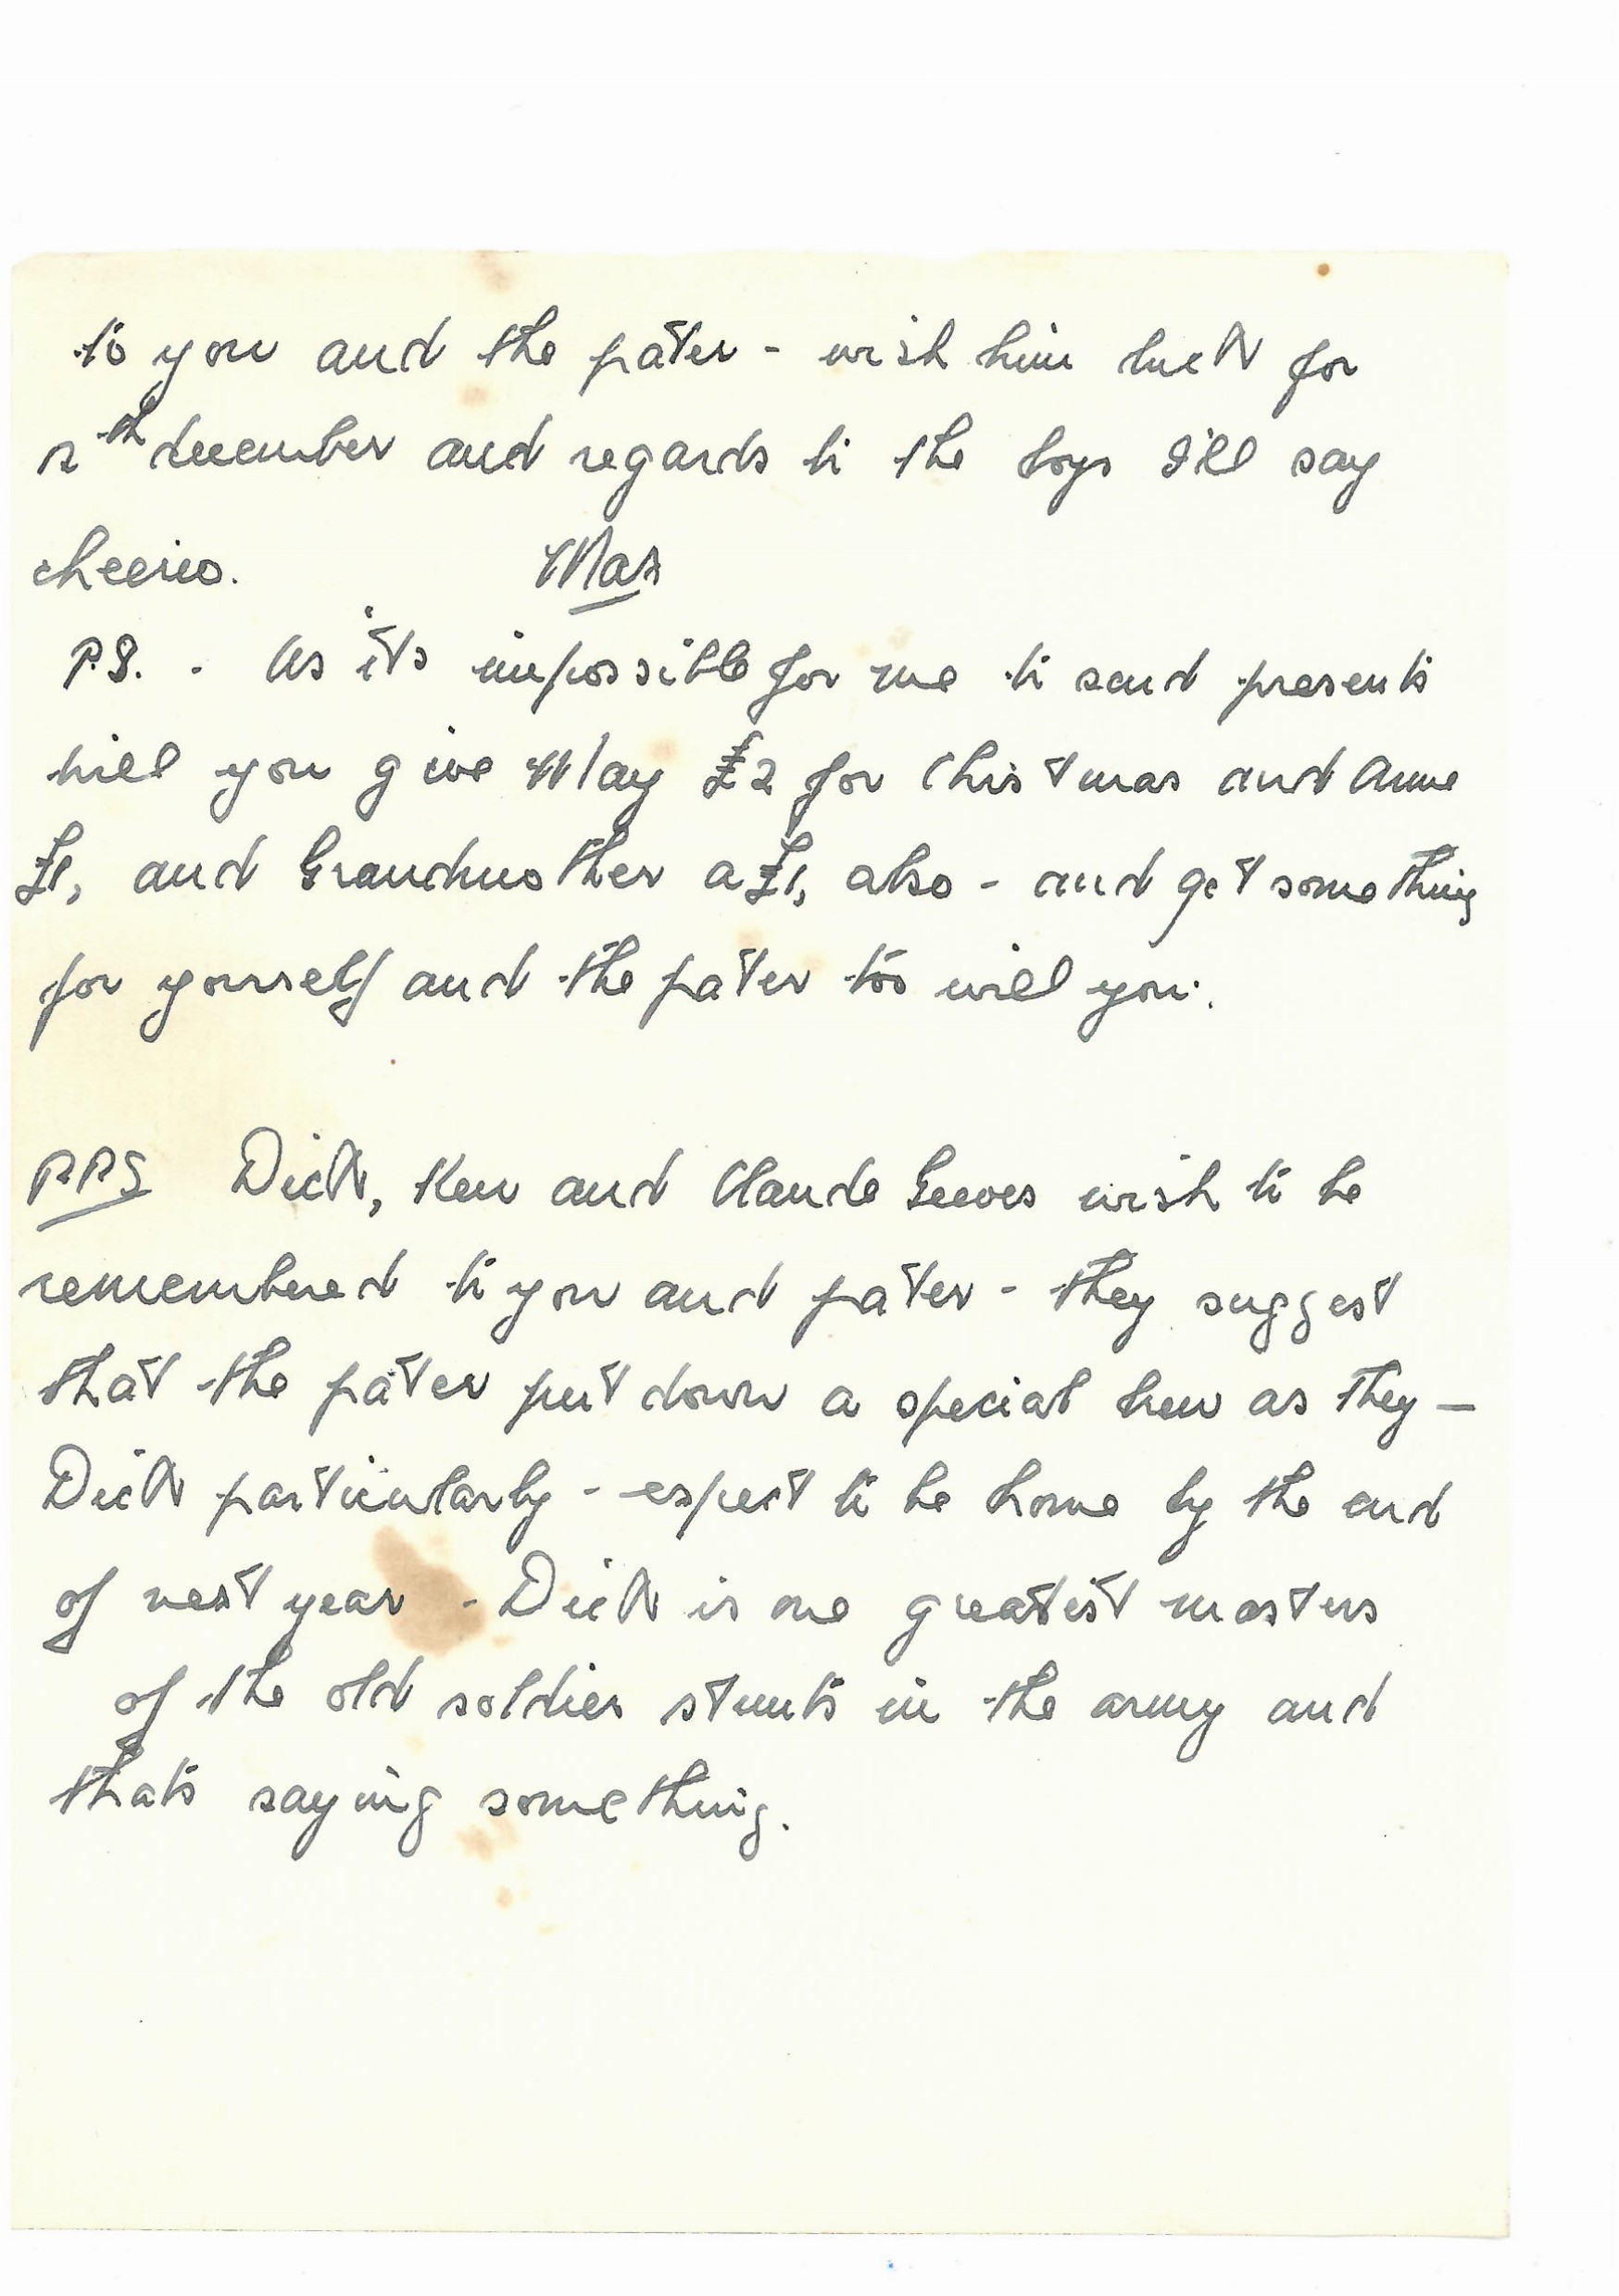 to you and the pater - wish him luck for
th december and regards to the boys I'll say
cheerio. Max
P.S. - As it's impossible for me to send presents
will you give May £2 for Christmas and Anne
£1, and Grandmother a £1, also - and get something
for yourself and the pater too will you.
P.P.S Dick, Ken and Claude Geeves wish to be
remembered to you and pater - they suggest
that the pater put down a special brew as they —
Dick particularly - expect to be home by the end
of next year - Dick is one greatest masters
of the old soldier stunts in the army and
thats saying something.